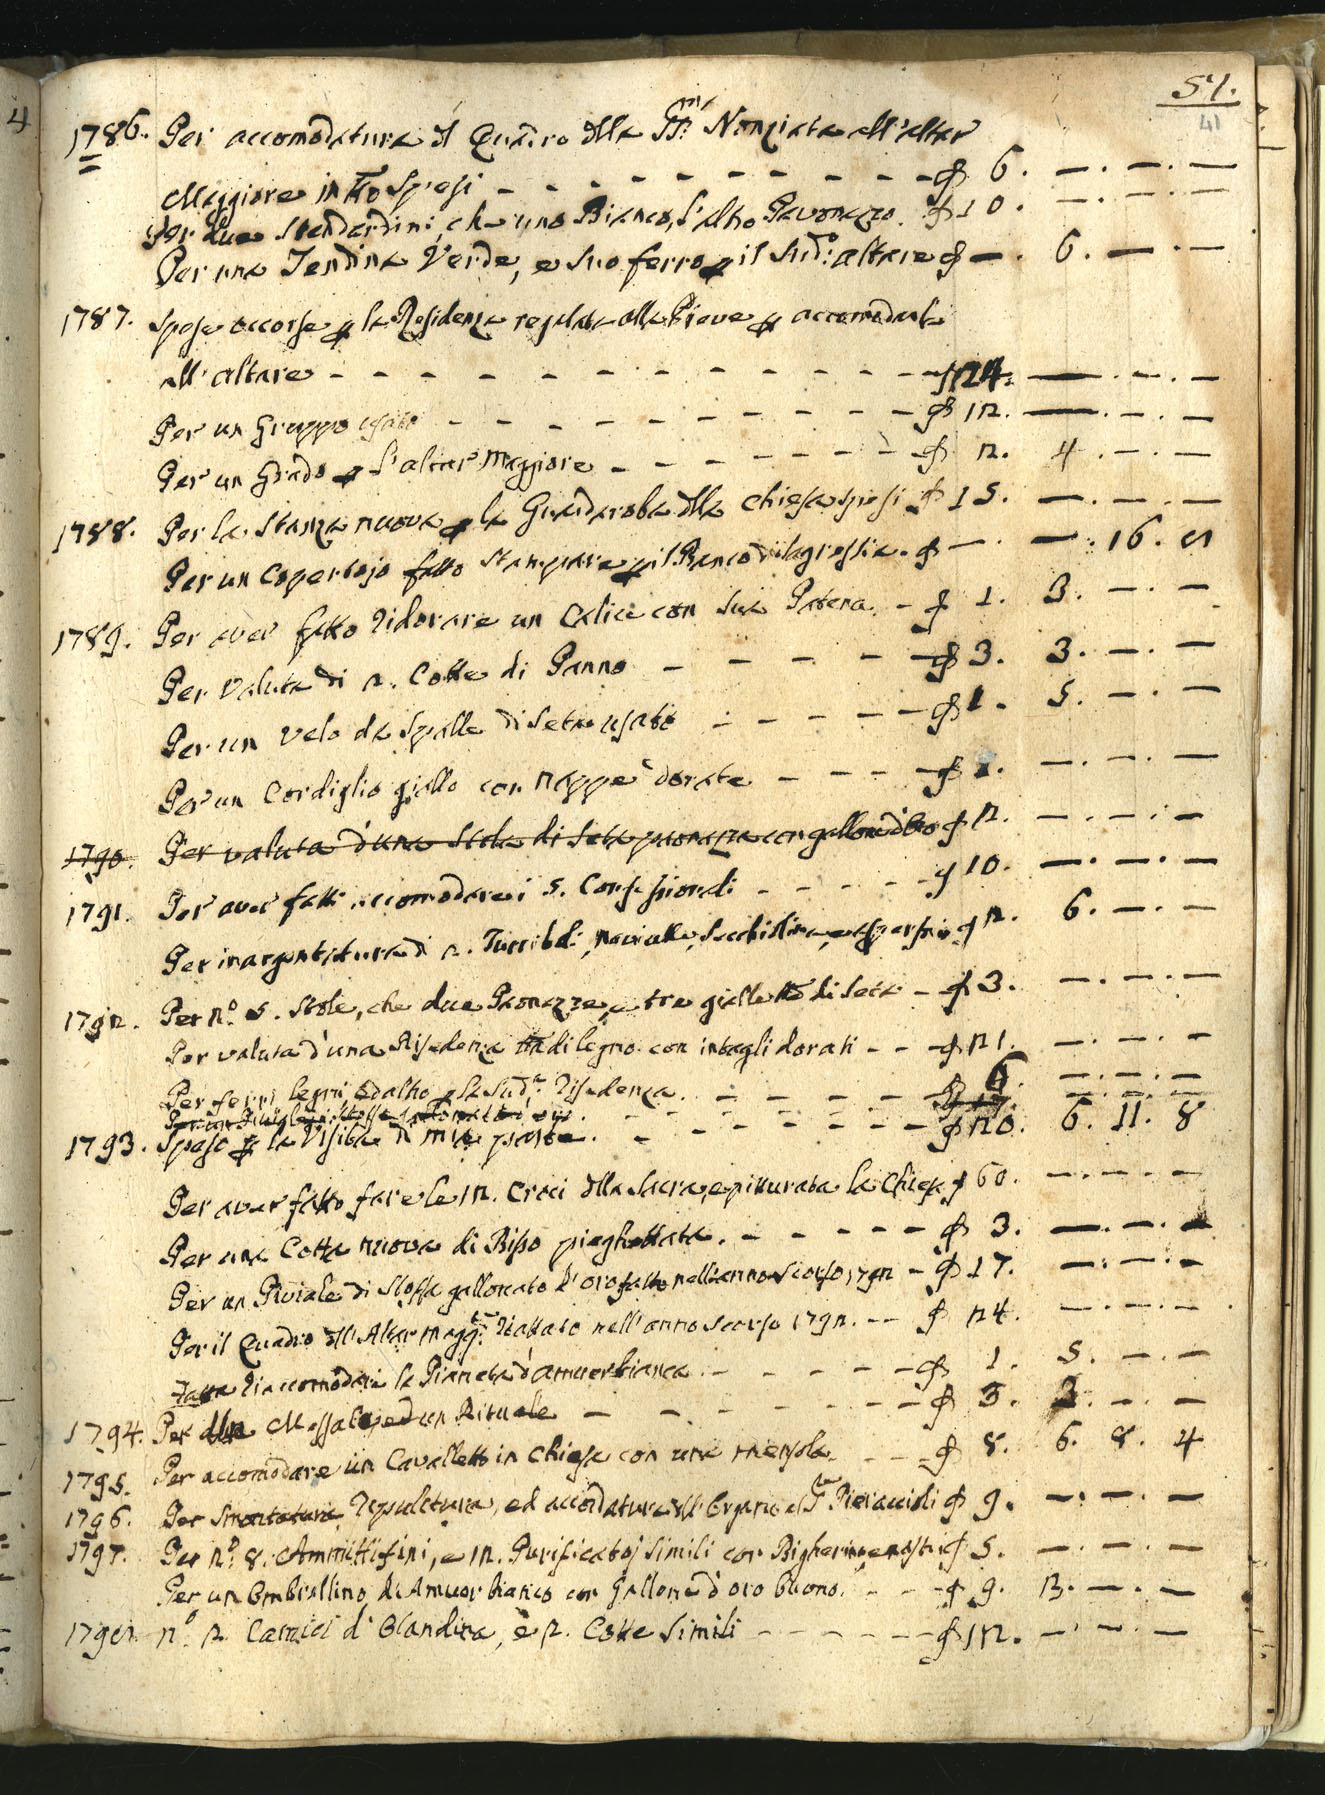 51.
41
4
1786. Per accomodatura d Quadro dlla SS.ma Nonziata all'altar
Maggiore in tto spesi - - - - - - - - - - ф 6. —. —. —
Per due Stendardini, che uno Bianco, l'altro Pavonazzo. ф 10. —. —. —
Per una Tendina Verde, e suo ferro p il sud.o altare ф —. 6. —. —
1787. Spese occorse p la Residenza regalata alla Pieve p accomodarla
all'altare - - - - - - - - - - - ф 124. —. —. —
Per un Gruppo usato - - - - - - - - ф 12. —. —. —
Per un Grado p l'altar Maggiore - - - - - - - ф 2. 4. —. —
1788. Per la Stanza nuova p la Guardaroba dlla Chiesa spesi ф 15. —. —. —
Per un Copertojo fatto stampare p il Banco di Sagrestia. ф —. —. 16. 8
1789. Per aver fatto ridorare un Calice con sua Patena. - ф 1. 3. —. —
Per valuta di 2. Cotte di Panno - - - - - ф 3. 3. —. —
Per un velo da Spalle di Seta usato - - - - - ф 1. 5. —. —
Per un Cordiglio giallo con nappe dorate - - - - ф 1. —. —. —
1790. Per valuta d'una Stola di Seta paonazza con gallone d'Oro ф 2. —. —. —
1791. Per aver fatti accomodare i 5. Confessionali - - - - - ф 10. —. —. —
Per inargentatura di 2. Turriboli, navicelle, Secchiolina, e aspersorio ф 2. 6. —. —
1792. Per n.o 5. Stole, che due Paonazze, e tre gialle tto di Seta - ф 3. —. —. —
Per valuta d'una Risedenza di legno con intagli dorati - - ф 21. —. —. —
Per ferri, legni, ed altro p la Sud.a Risedenza. - - - - - ф 6 —. —. —
1793. Spese p la Visita di mia parte. - - - - - - - - ф 20. 6. 11. 8
Per aver fatto fare le 12. Croci dlla Sacra, e pitturata la Chiesa ф 60. —. —. —
Per una Cotta nuova di Bisso pieghettata. - - - - - - ф 3. —. —. —
Per un Piviale di Stoffa gallonato d'oro fatto nell'anno scorso 1792 - ф 17. —. —. —
Per il Quadro dll'Altar magg.re riattato nell'anno scorso 1792. - - ф 24. —. —. —
Fatta riaccomodare la Pianeta d'amuer bianca - - - - - - ф 1. 5. —. —
1794. Per un Messale, ed un Rituale - - - - - - - - ф 3. 2. —. —
1795. Per accomodare un Cavalletto in Chiesa con una mensola. - - - ф 8. 6. 8. 4
1796. Per Ripulitura, ed accordatura dll'Organo al S.r Pieraccioli ф 9. —. —. —
1797. Per n.o 8. Ammitti fini, e 12. Purificatoj simili con Bigherino, e nastri ф 5. —. —. —
Per un Ombrellino di Amuer bianco con Gallone d'oro buono. - - - ф 9. 13. —. —
1798. n.o 2. Camici d'Olandina, e 2. Cotte simili - - - - - - ф 12. —. —. —